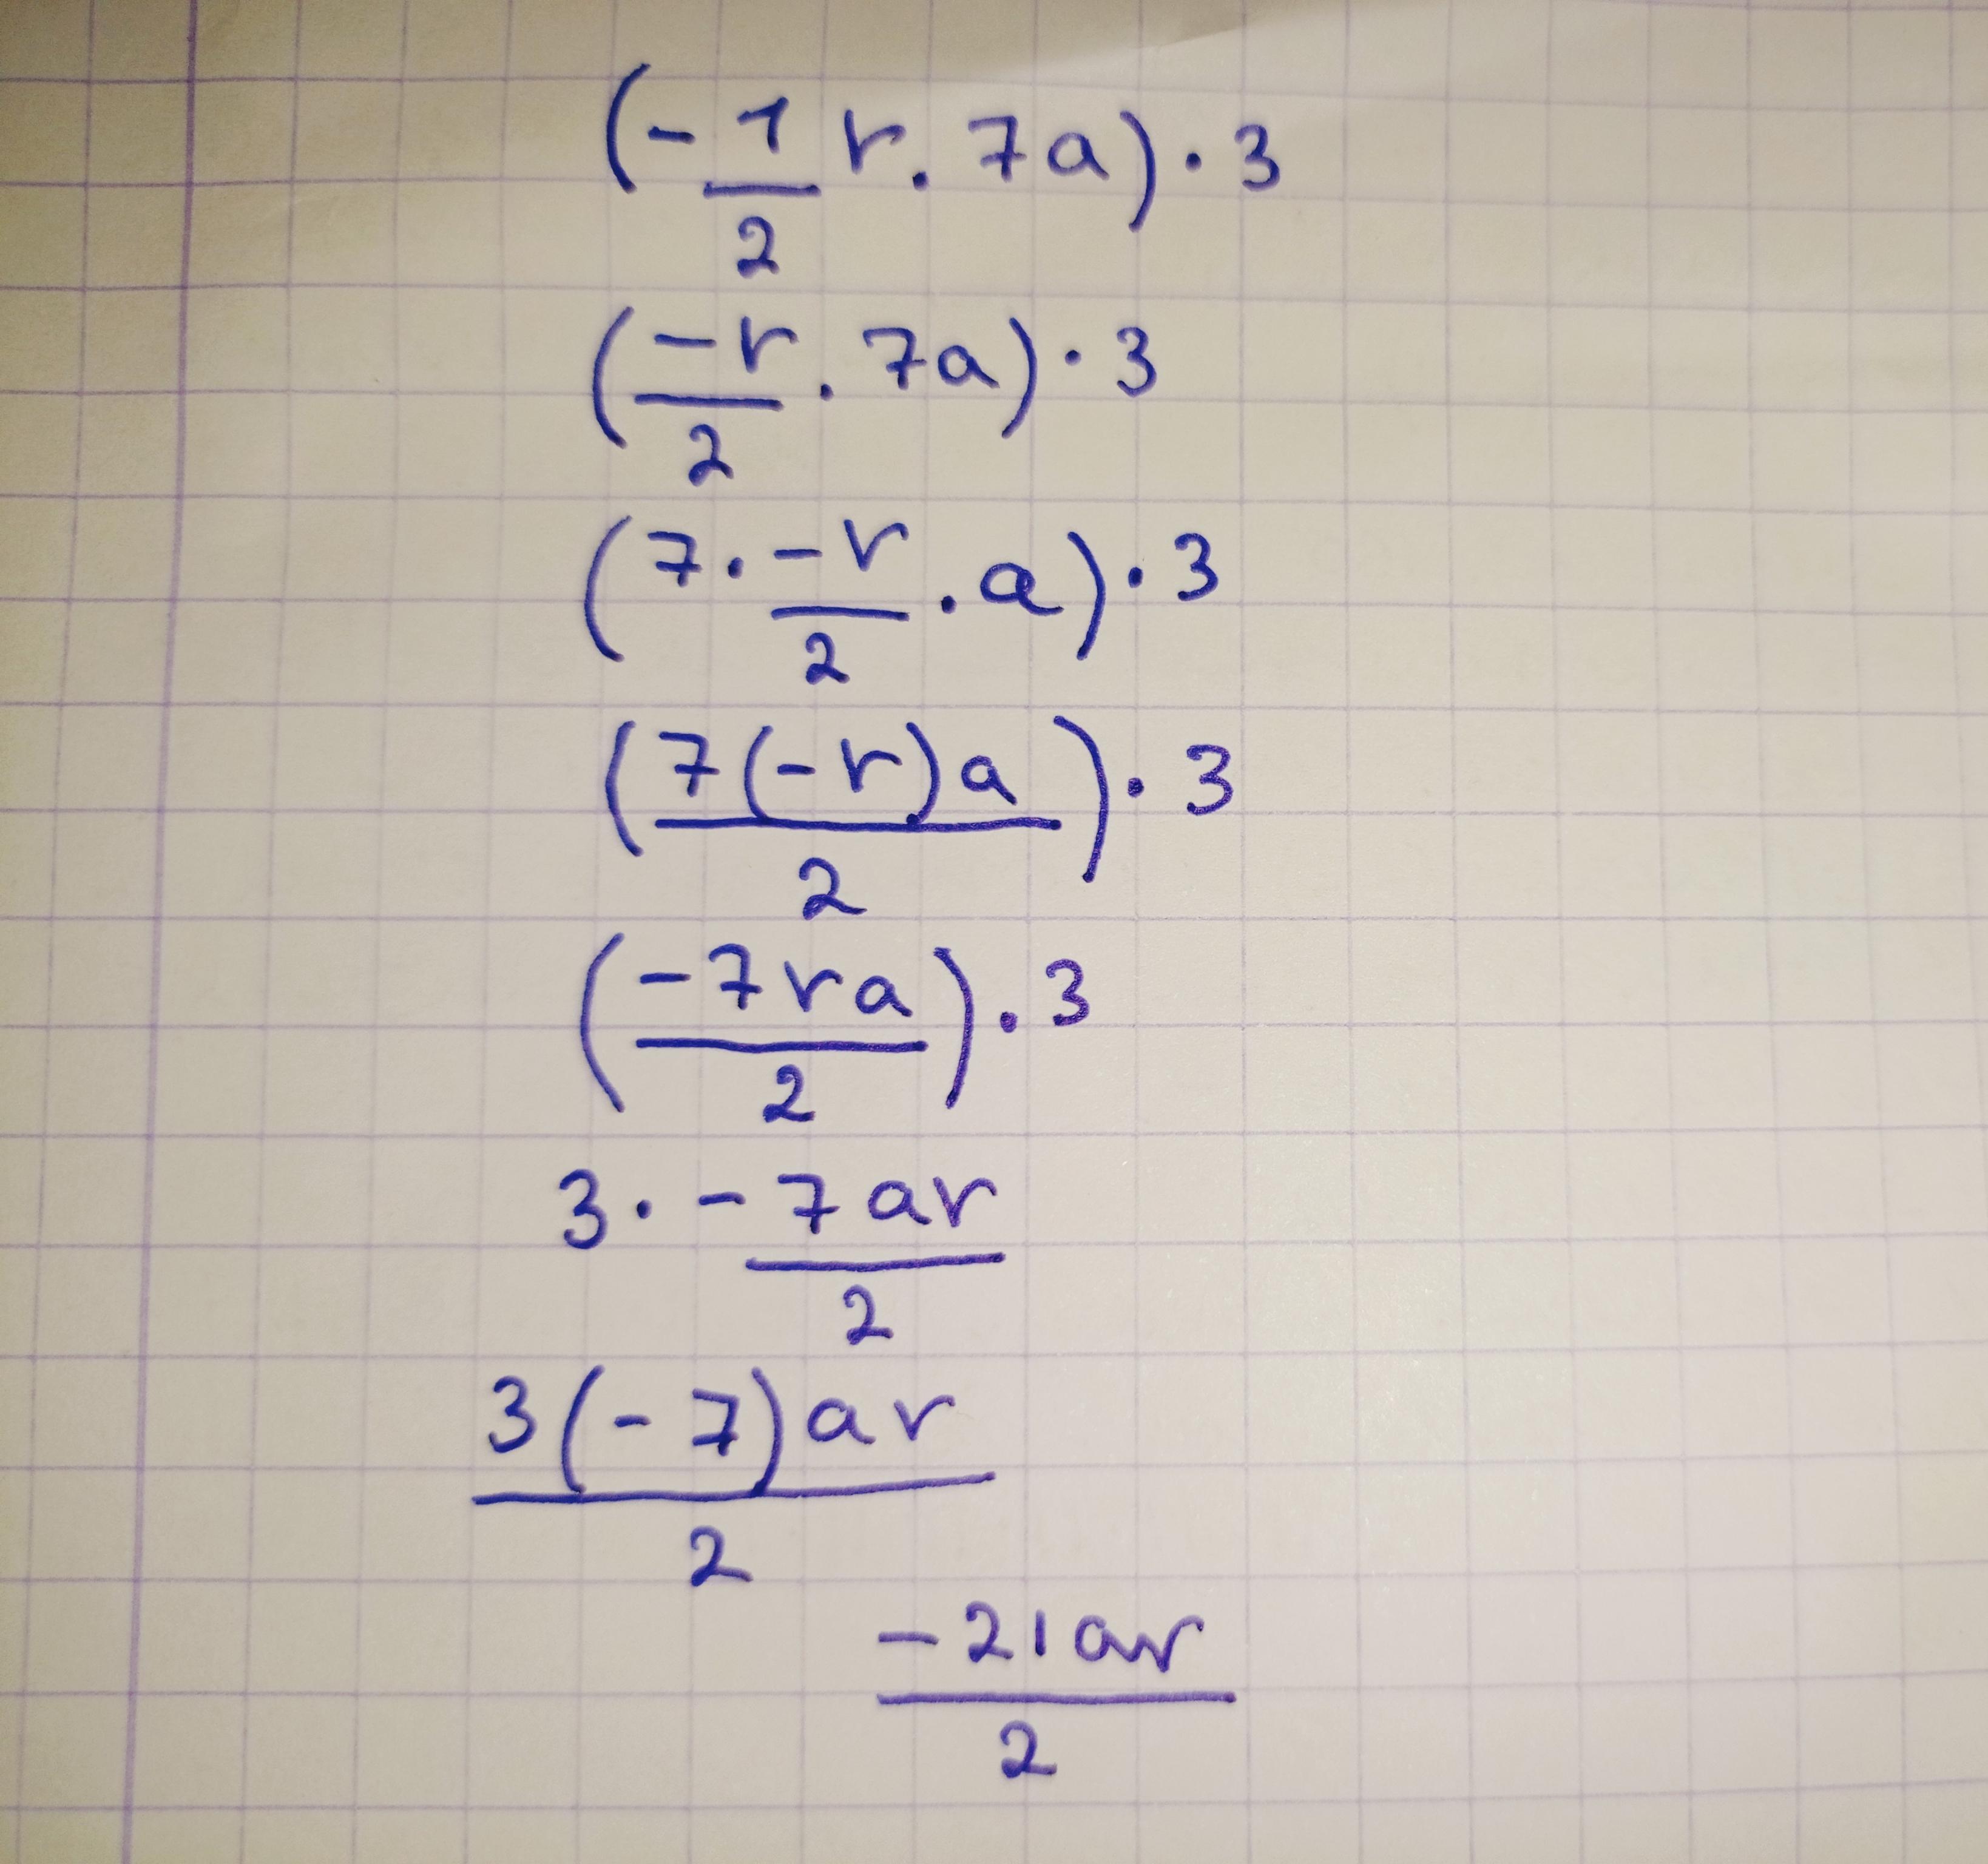 (-1/2 r . 7a) · 3
(-r/2 . 7a) · 3
(7 · -r/2 . a) · 3
(7(-r)a/2) · 3
(-7ra/2) · 3
3 · -7ar/2
3(-7)ar/2
-21ar/2